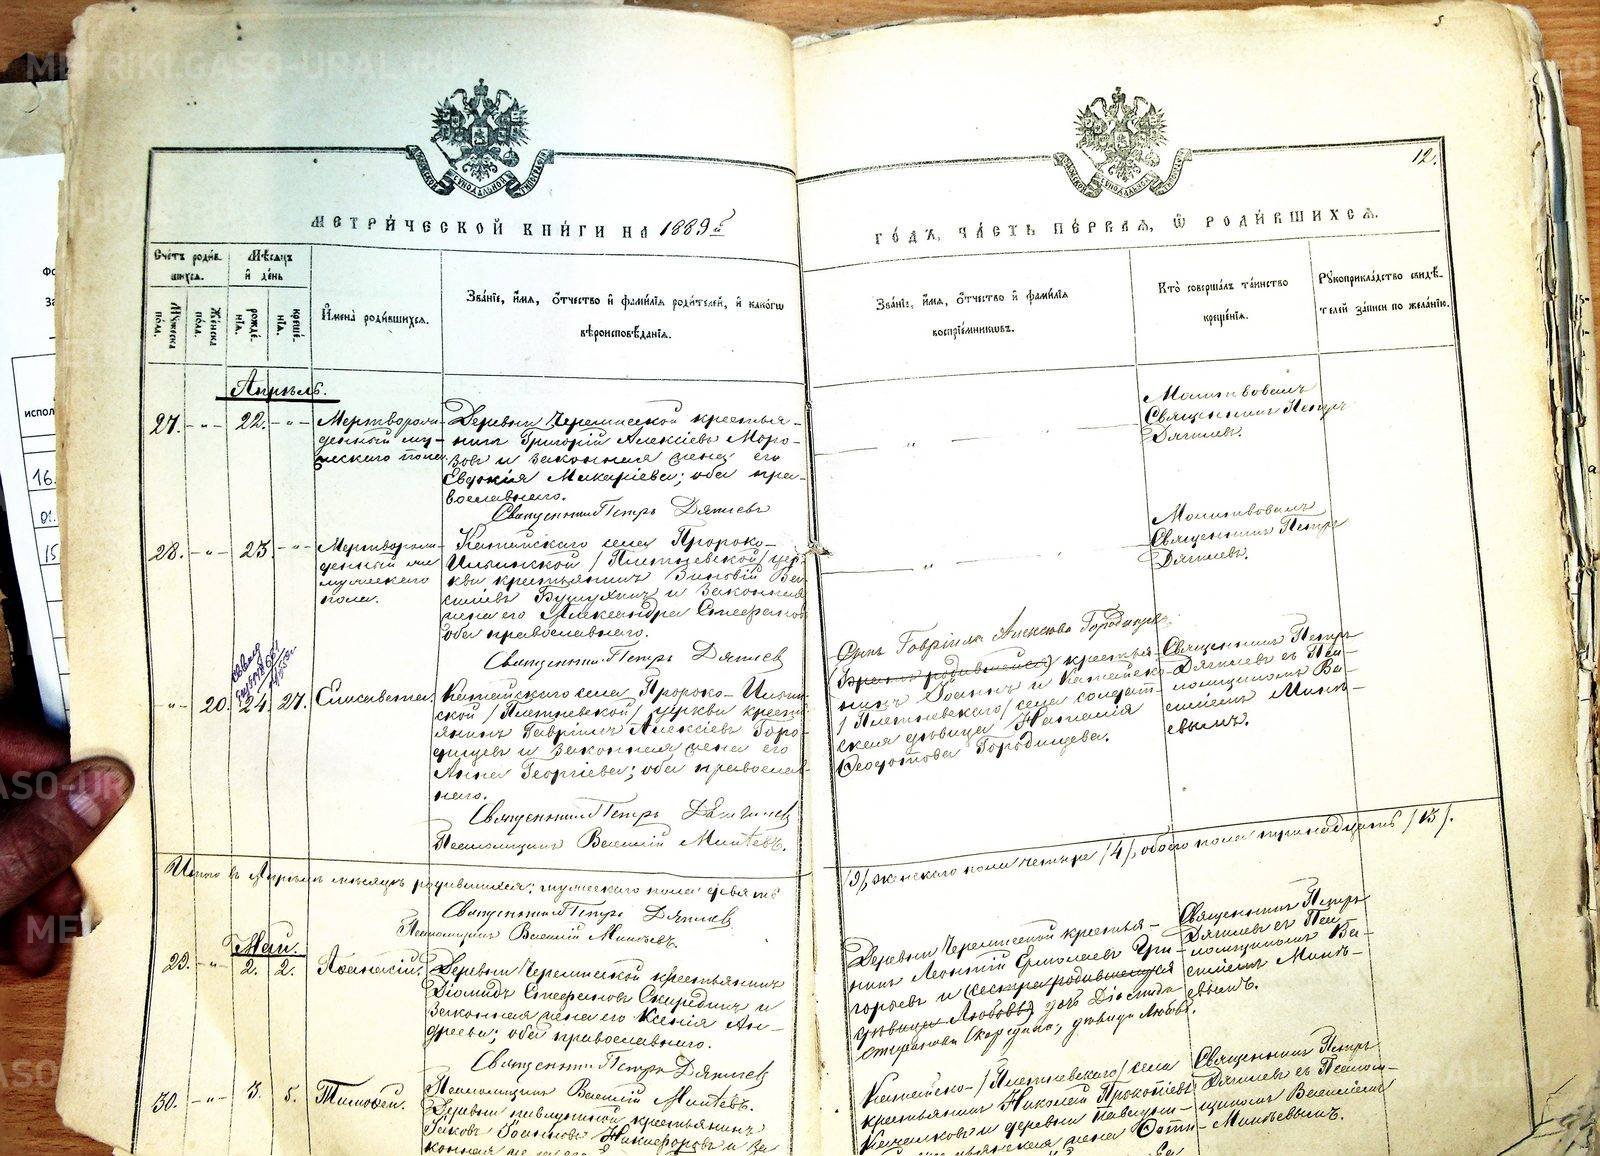 METRIKI.GASO-URAL.RU
5
12.
МЕТРИ́ЧЕСКОЙ КНИ́ГИ НА 1889й
ГО́ДЪ, ЧА́СТЬ ПЕ́РВАЯ, Ѿ РОДИ́ВШИХСЯ.
Сче́тъ роди́вшихся.
Му́жеска по́ла.
Же́нска по́ла.
Мѣ́сяцъ и́ де́нь
рожде́нїя.
креще́нїя.
И́мена̀ роди́вшихся.
Зва́нїе, и́мя, о́тчество и́ фами́лїя роди́телей, и́ како́гѡ
вѣроисповѣ́данїя.
Зва́нїе, и́мя, о́тчество и́ фами́лїя
воспрїе́мниковъ.
Кто̀ соверша́лъ та́инство
креще́нїя.
Рꙋкоприкла́дство свидѣ́-
телей за́писи по жела́нїю.
Апрѣль.
27. - „ - 22. - „ -
Мертворож-
денный му-
жескаго пола.
Деревни Черемисской крестья-
нинъ Григорій Алексіевъ Моро-
зовъ и законная жена его
Евдокія Макаріева; оба пра-
вославнаго.
Священникъ Петръ Дягилевъ
Молитвовалъ
Священникъ Петръ
Дягилевъ.
28. - „ - 23. - „ -
Мертворож-
денный
мужескаго
пола.
Катайскаго села Пророко-
Ильинской /Плетневской/ цер-
кви крестьянинъ Зиновій Ва-
силіевъ и законная
жена его Александра Стефанова
оба православнаго.
Священникъ Петръ Дягилев
Молитвовалъ
Священникъ Петръ
Дягилевъ.
- „ - 20. 24. 27. Елисавета.
Катайскаго села Пророко-Ильин-
ской /Плетневской/ церкви кресть-
янинъ Гавріилъ Алексіевъ Горо-
дищевъ и законная жена его
Анна Георгіева; оба православ-
наго.
Священникъ Петръ Дягилев
Псаломщикъ Василій Минѣевъ.
Сынъ Гавріила Алексіева Городищева
(братъ родившейся) крестья-
нинъ Іоаннъ и Катайско-
/Плетневскаго/ села солдат-
ская дѣвица Наталія
Ѳеодотова Городищева.
Священникъ Петръ
Дягилевъ съ Пса-
ломщикомъ Ва-
силіемъ Минѣ-
евымъ.
Итого въ Апрѣлѣ мѣсяцѣ родившихся: мужескаго пола девять
/9/, женскаго пола четыре /4/, обоего пола тринадцать /13/.
Священникъ Петръ Дягилев
Псаломщикъ Василій Минѣевъ.
Май.
29. - „ - 2. 2. Аѳанасій.
Деревни Черемисской крестьянинъ
Діомидъ Стефановъ Скурединъ и
законная жена его Ксенія Ан-
дреева; оба православнаго.
Священникъ Петръ Дягилев
Псаломщикъ Василій Минѣевъ.
Деревни Черемисской крестья-
нинъ Леонтій Ермолаевъ Гри-
горьевъ и (сестра родившагося
дѣвица Любовь) дочь Діомида
Стефанова дѣвица Любовь.
Священникъ Петръ
Дягилевъ съ Пса-
ломщикомъ Ва-
силіемъ Минѣ-
евымъ.
30. - „ - 3. 5. Тимоѳей.
Деревни крестьянинъ
Іаковъ Іоанновъ Никифоровъ и за-
конная
Катайско-/Плетневскаго/ села
крестьянинъ Николай Прокопіевъ
и деревни
жена
Священникъ Петръ
Дягилевъ съ Псалом-
щикомъ Василіемъ
Минѣевымъ.